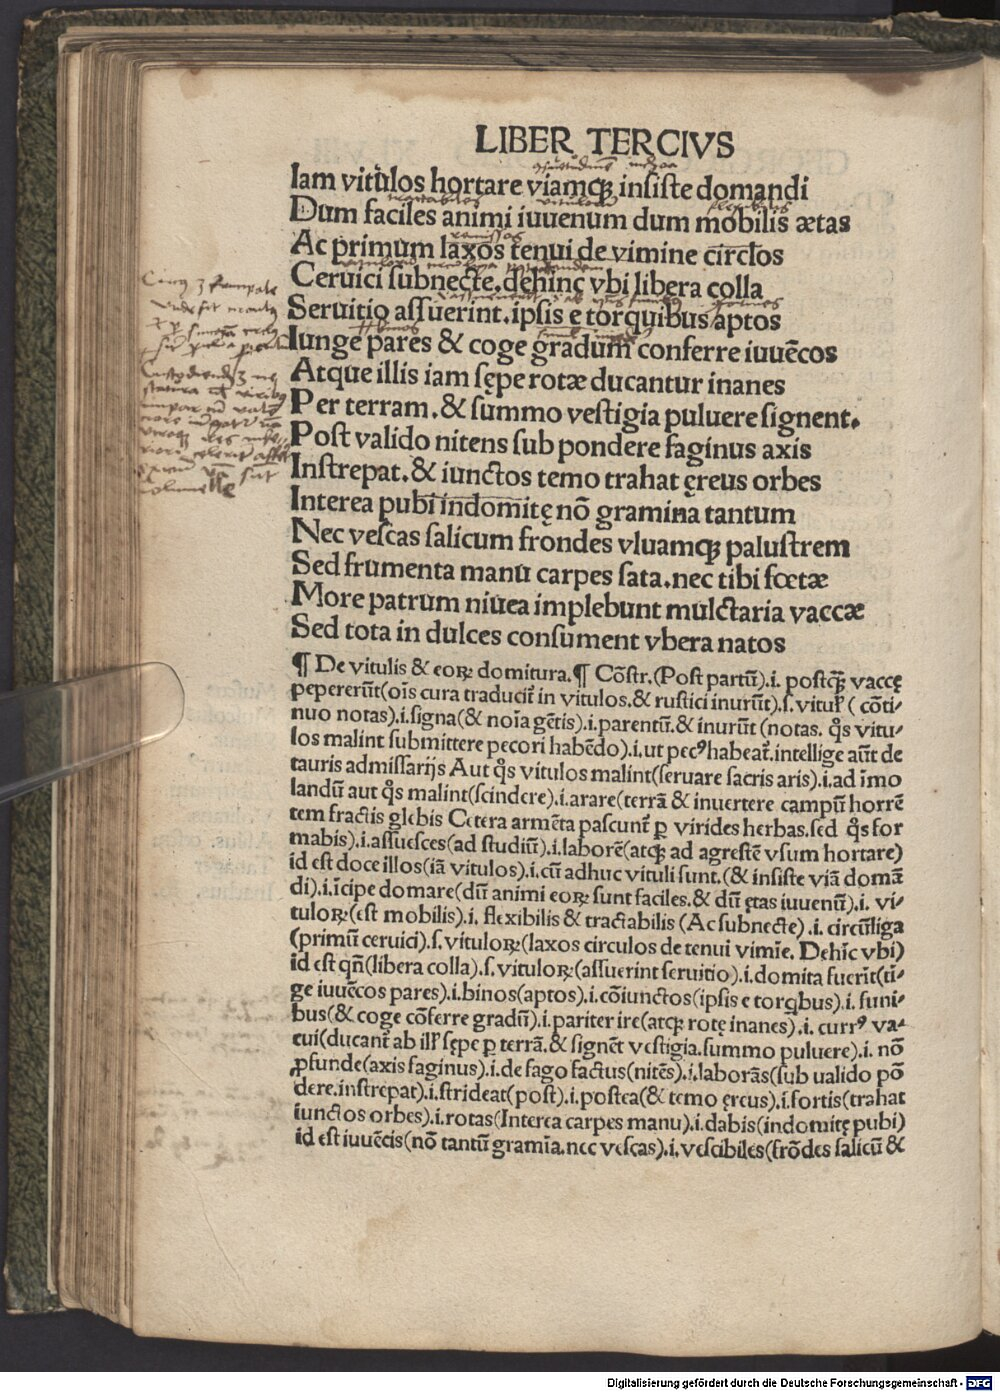 LIBER TERCIVS
Iam vitulos hortare viamqꝫ insiste domandi
Dum faciles animi iuuenum dum mobilis ætas
Ac primum laxos tenui de vimine circlos
Ceruici subnecte.dehinc vbi libera colla
Seruitio assuerint.ipsis e torquibus aptos
Iunge pares & coge gradum conferre iuuēcos
Atque illis iam sępe rotæ ducantur inanes
Per terram.& summo vestigia puluere signent.
Post valido nitens sub pondere faginus axis
Instrepat.& iunctos temo trahat ęreus orbes
Interea pubi indomitę nō gramina tantum
Nec vescas salicum frondes vluamqꝫ palustrem
Sed frumenta manu carpes sata.nec tibi fœtæ
More patrum niuea implebunt mulctaria vaccæ
Sed tota in dulces consument vbera natos
¶ De vitulis & eoꝝ domitura.¶ Cōstr.(Post partū).i. postqꝫ vaccę
pepererūt(oīs cura traducit̄ in vitulos.& rustici inurūt).s.vitul̓ ( cōti⸗
nuo notas).i.signa(& noīa gētis).i.parentū.& inurūt (notas. qͦs vitu⸗
los malint submittere pecori habēdo).i.ut pecꝰ habeat̄.intellige aūt de
tauris admissarijs Aut qͦs vitulos malint(seruare sacris aris).i.ad īmo
landū aut qͦs malint(scindere).i.arare(terrā & inuertere campū horrē
tem fractis glebis Cetera armēta pascunt̄ ꝑ virides herbas.sed qͦs for
mabis).i.assuesces(ad studiū).i.laborē(atqꝫ ad agrestē vsum hortare)
id est doce illos(iā vitulos).i.cū adhuc vituli sunt.(& insiste viā domā
di).i.īcipe domare(dū animi eoꝝ sunt faciles.& dū ętas iuuenū).i. vi⸗
tuloꝝ(est mobilis).i. flexibilis & tractabilis (Ac subnecte).i. circūliga
(primū ceruici).s.vituloꝝ(laxos circulos de tenui vimīe. Dehīc vbi)
id est qn̄(libera colla).s.vituloꝝ(assuerint seruitio).i.domita fuerīt(iū⸗
ge iuuēcos pares).i.binos(aptos).i.cōiunctos(ipsis e torqͥbus).i.funi⸗
bus(& coge cōferre gradū).i.pariter ire(atqꝫ rotę inanes).i. currꝰ va⸗
cui(ducant̄ ab ill̓ sępe ꝑ terrā.& signēt vestigia.summo puluere).i. nō
ꝓfunde(axis faginus).i.de fago factus(nitēs).i.laborās(sub ualido pō
dere.instrepat).i.strideat(post).i.postea(& temo ęreus).i.fortis(trahat
iunctos orbes).i.rotas(Interea carpes manu).i.dabis(indomitę pubi)
id est iuuēcis(nō tantū gramīa.nec vescas).i.vescibiles(frōdes salicū &
Digitalisierung gefördert durch die Deutsche Forschungsgemeinschaft - DFG